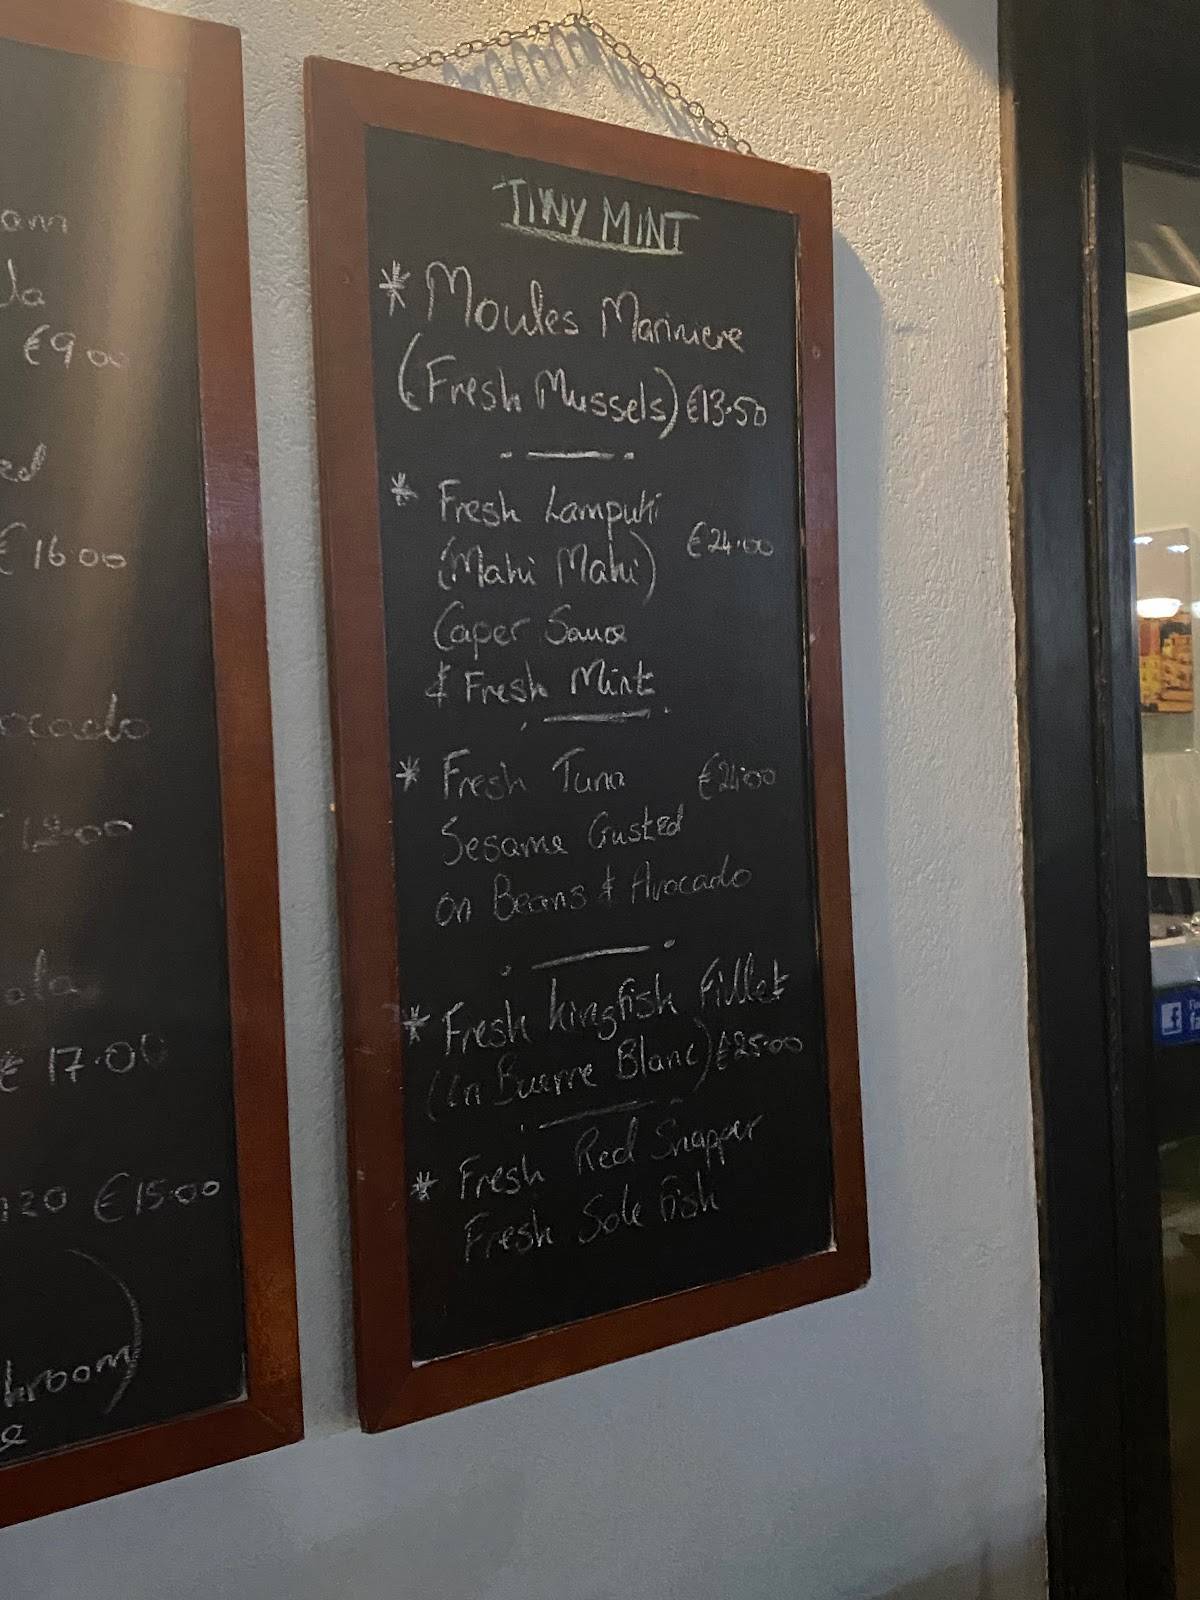 ocado
€9 00
€16 00
€17.00
€15.00
TINY MINT
* Moules Mariniere
(Fresh Mussels) €13.50
* Fresh Lampuki
(Mahi Mahi) €24.00
Caper Sauce
& Fresh Mint
* Fresh Tuna €24.00
Sesame Crusted
on Beans & Avocado
* Fresh Kingfish Fillet
(in Buerre Blanc) €25.00
* Fresh Red Snapper
Fresh Sole Fish